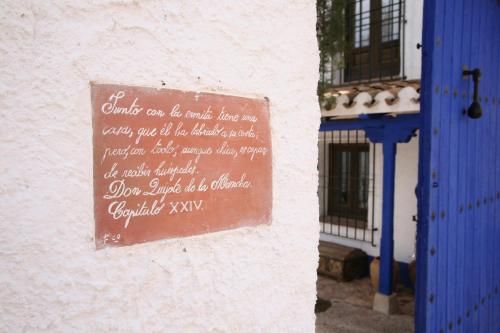 Junto con la ermita tiene una
casa, que él ha labrado a su costa;
pero, con todo, aunque chica, es capaz
de recibir huéspedes.
Don Quijote de la Mancha.
Capítulo XXIV.